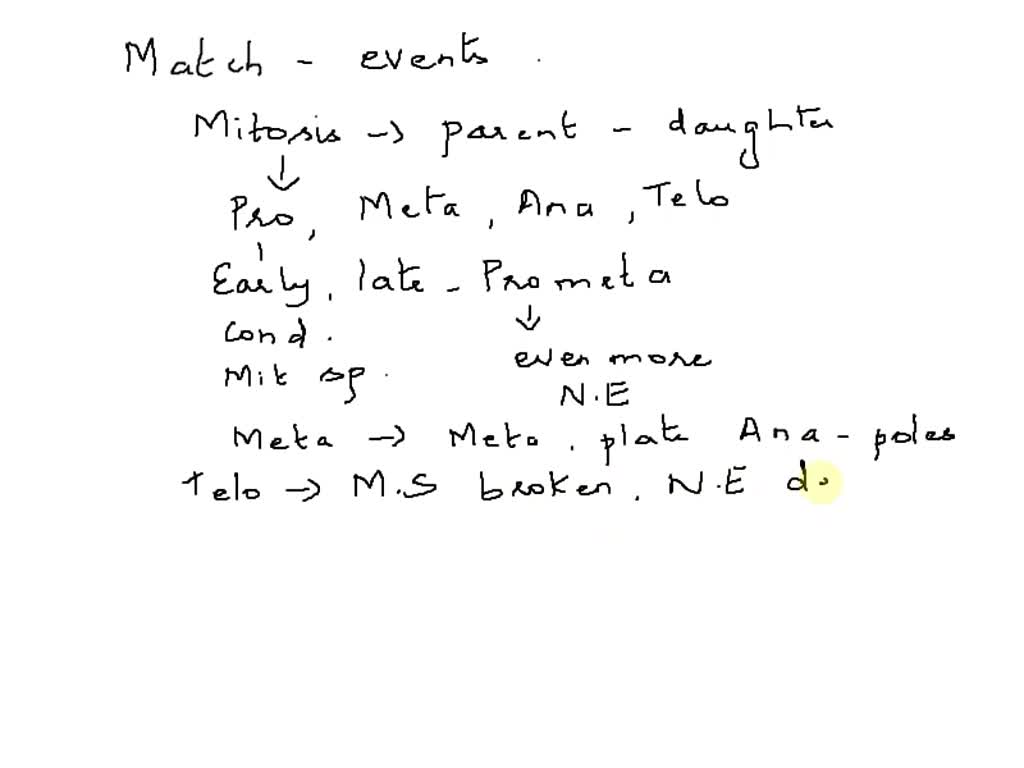 Match - events .
Mitosis → parent - daughter
↓
Pro, Meta, Ana, Telo
Early, late - Prometa
↓
Cond.
even more
Mit sp.
N.E
Meta → Meta. plate Ana - poles
Telo → M.S broken, N.E do